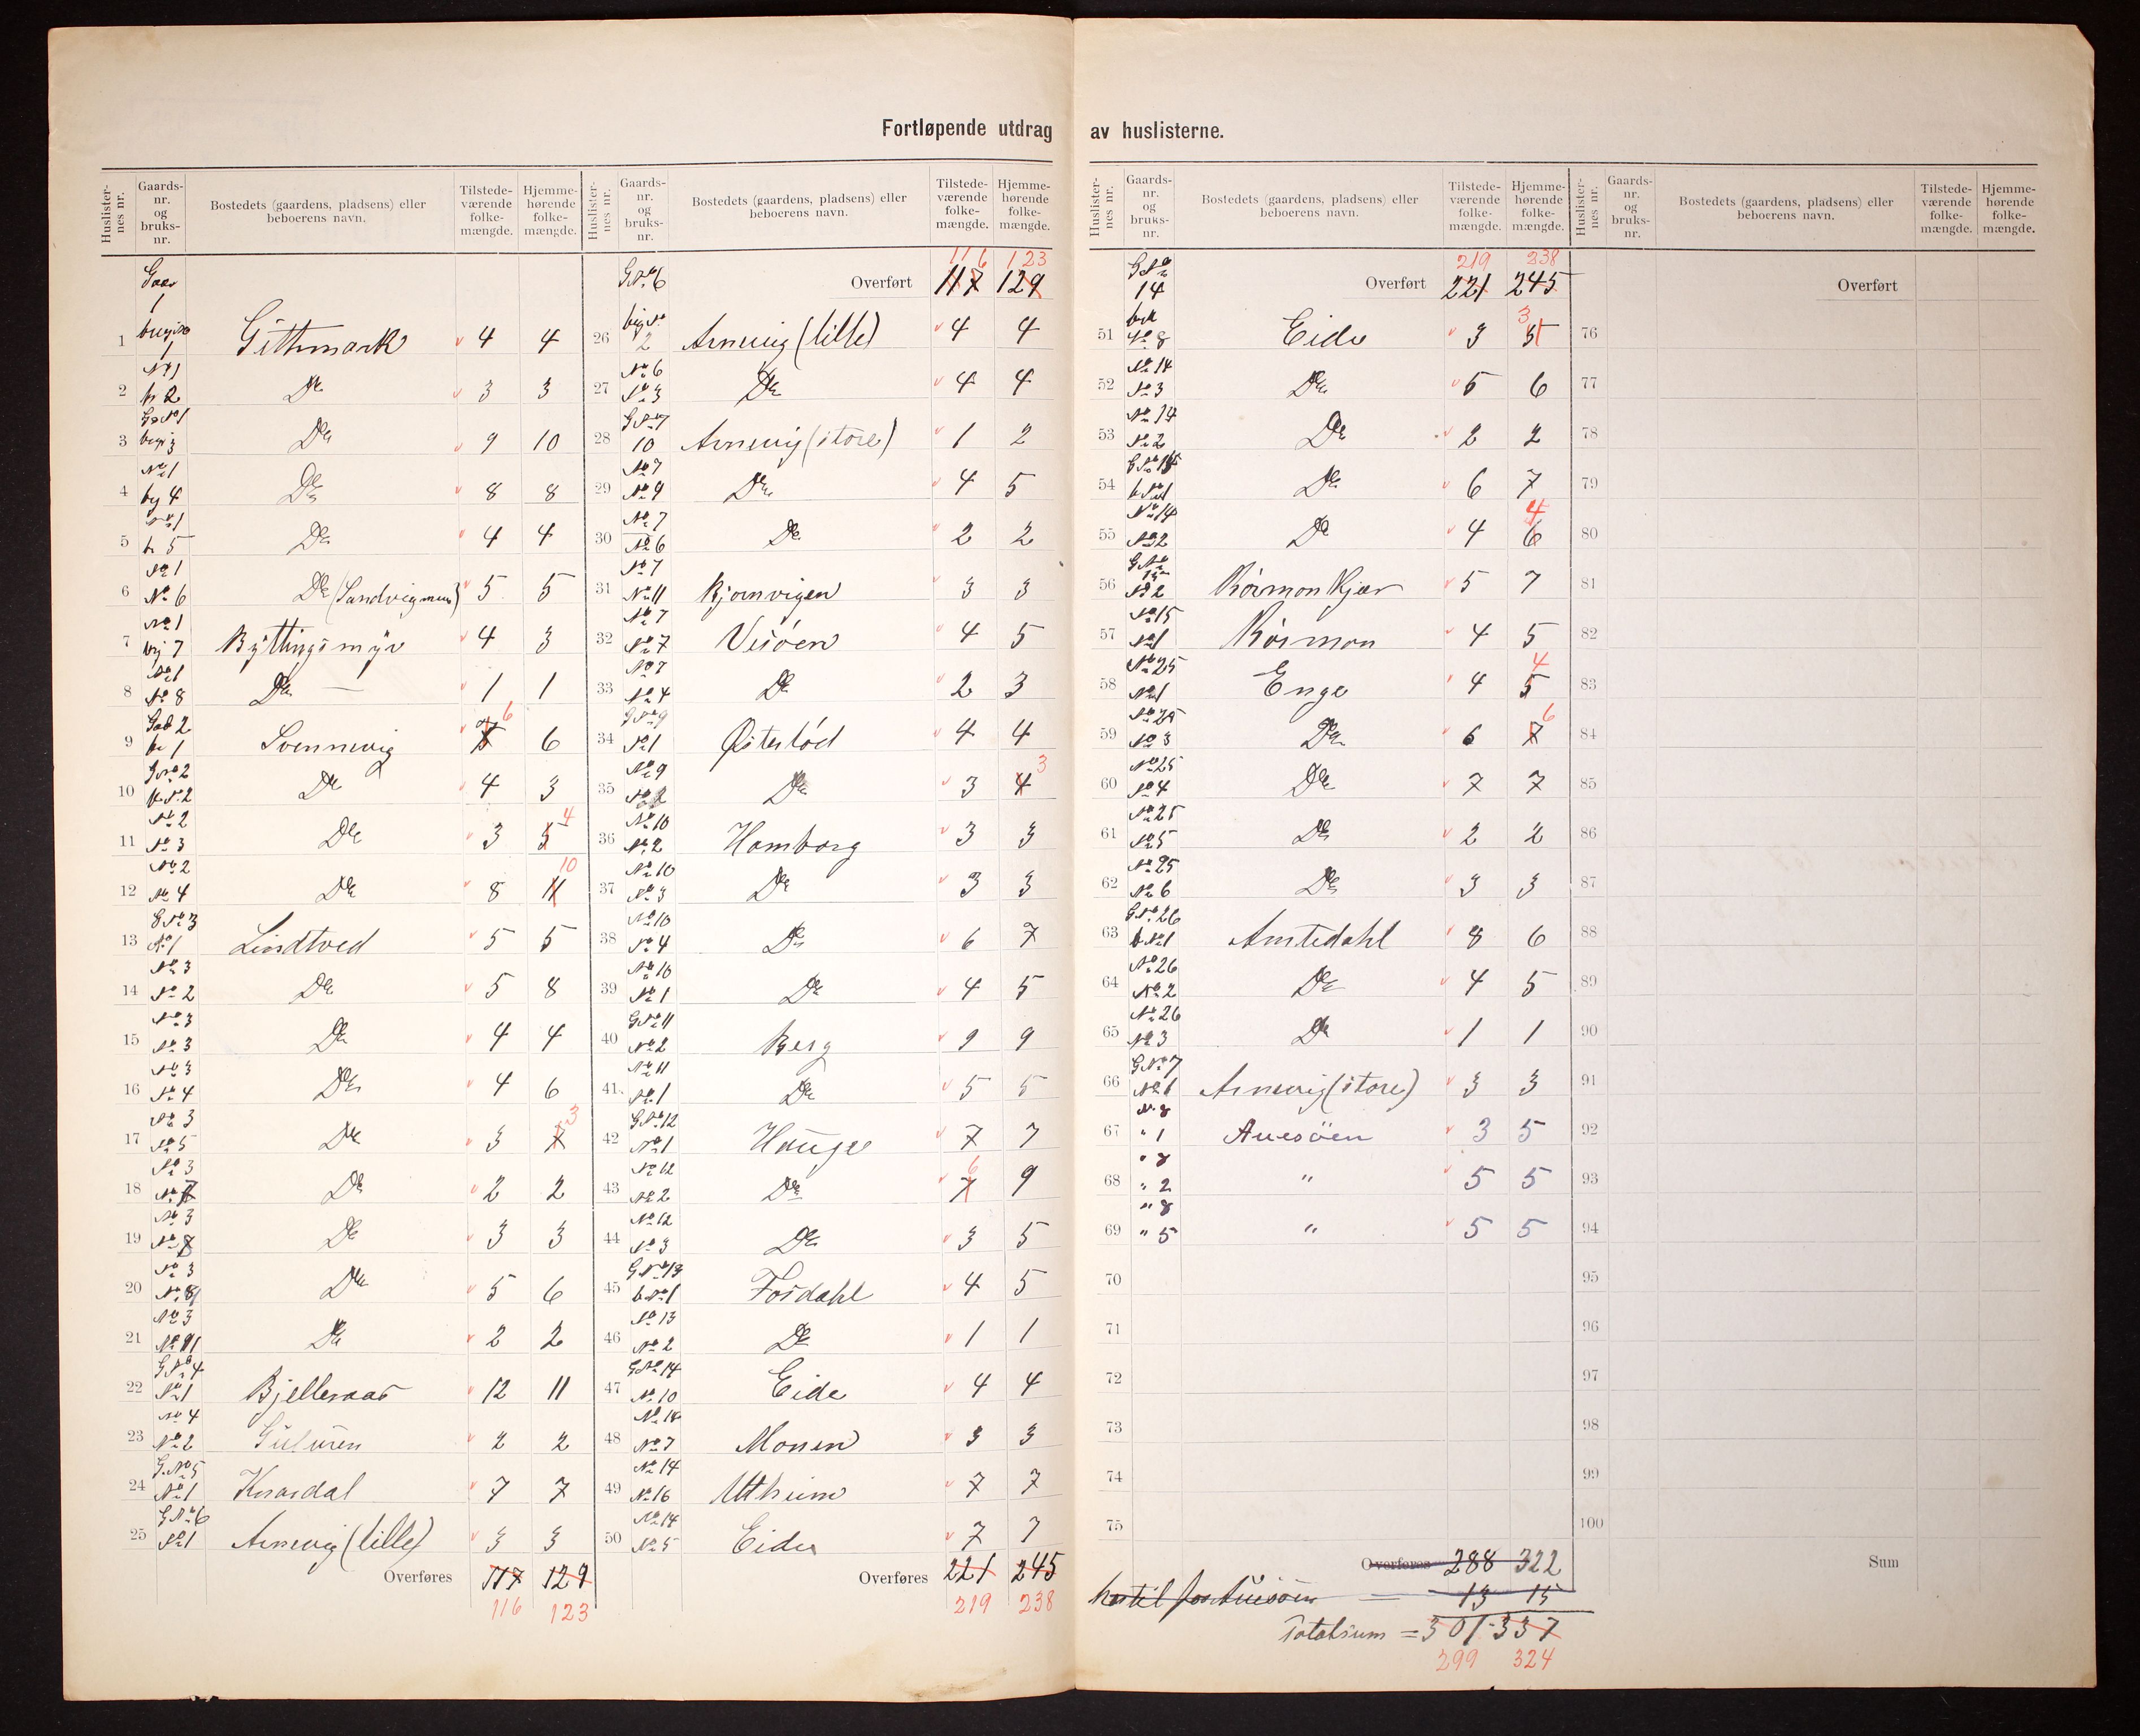 Fortløpende utdrag av huslisterne.
Huslister-nes nr. Gaards-nr. og bruks-nr. Bostedets (gaardens, pladsens) eller beboerens navn. Tilstede-værende folke-mængde. Hjemme-hørende folke-mængde.
1 1 1 Githmark 4 4
2 No 1 br 2 Do 3 3
3 No 1 3 Do 9 10
4 No 1 4 Do 8 8
5 No 1 b 5 Do 4 4
6 No 1 No 6 Do (Sandvigmun) 5 5
7 No 1 7 Byttingsmyr 4 3
8 No 1 No 8 Do — 1 1
9 2 br 1 Svennevig 6 6
10 2 2 Do 4 3
11 No 2 No 3 Do 3 5 4
12 No 2 No 4 Do 8 11 10
13 G No 3 No 1 Lindtved 5 5
14 No 3 No 2 Do 5 8
15 No 3 No 3 Do 4 4
16 No 3 No 4 Do 4 6
17 No 3 No 5 Do 3 7 3
18 No 3 No 7 Do 2 2
19 No 3 No 8 Do 3 3
20 No 3 No 8 Do 5 6
21 No 3 No 11 Do 2 2
22 G No 4 No 1 Bjelleraas 12 11
23 No 4 No 2 2 2
24 G. No 5 No 1 Knardal 7 7
25 G No 6 No 1 Arnevig (lille) 3 3
Overføres 117 129
116 123
Huslister-nes nr. Gaards-nr. og bruks-nr. Bostedets (gaardens, pladsens) eller beboerens navn. Tilstede-værende folke-mængde. Hjemme-hørende folke-mængde.
116 123
G No 6 Overført 117 129
26 2 Arnevig (lille) 4 4
27 No 6 No 3 Do 4 4
28 G No 7 10 Arnevig (store) 1 2
29 No 7 No 9 Do 4 5
30 No 7 No 6 Do 2 2
31 No 7 No 11 Bjornvigen 3 3
32 No 7 No 7 Vesöen 4 5
33 No 7 No 4 Do 2 3
34 G No 9 No 1 Østerlöd 4 4
35 No 9 No 2 Do 3 4 3
36 No 10 No 2 Homborg 3 3
37 No 10 No 3 Do 3 3
38 No 10 No 4 Do 6 7
39 No 10 No 1 Do 4 5
40 G No 11 No 2 Berg 9 9
41 No 11 No 1 Do 5 5
42 G No 12 No 1 Hauge 7 7
43 No 12 No 2 Do 7 6 9
44 No 12 No 3 Do 3 5
45 G No 13 b No 1 Fosdahl 4 5
46 No 13 No 2 Do 1 1
47 G No 14 No 10 Eide 4 4
48 No 14 No 7 Monen 3 3
49 No 14 No 16 Uttheim 7 7
50 No 14 No 5 Eide 7 7
Overføres 221 245
219 238
Huslister-nes nr. Gaards-nr. og bruks-nr. Bostedets (gaardens, pladsens) eller beboerens navn. Tilstede-værende folke-mængde. Hjemme-hørende folke-mængde.
219 238
G No 14 Overført 221 245
51 No 8 Eide 3 5 3
52 No 14 No 3 Do 5 6
53 No 14 No 2 Do 2 2
54 G No 14 b No 1 Do 6 7
55 No 14 No 2 Do 4 6 4
56 G No 15 No 2 Rosmon Kjær 5 7
57 No 15 No 1 Rosmon 4 5
58 No 25 No 1 Enge 4 5 4
59 No 25 No 3 Do 6 7 6
60 No 25 No 4 Do 7 7
61 No 25 No 5 Do 2 2
62 No 25 No 6 Do 3 3
63 G No 26 b No 1 Amtedahl 8 6
64 No 26 No 2 Do 4 5
65 No 26 No 3 Do 1 1
66 G No 7 No 1 Arnevig (store) 3 3
67 No 8 " 1 Auesöen 3 5
68 " 8 " 2 " 5 5
69 " 8 " 5 " 5 5
70
71
72
73
74
75
Overføres 288 322
her til for Auesöen — 13 15
Totalsum = 301 - 337
299 324
Huslister-nes nr. Gaards-nr. og bruks-nr. Bostedets (gaardens, pladsens) eller beboerens navn. Tilstede-værende folke-mængde. Hjemme-hørende folke-mængde.
Overført
76
77
78
79
80
81
82
83
84
85
86
87
88
89
90
91
92
93
94
95
96
97
98
99
100
Sum